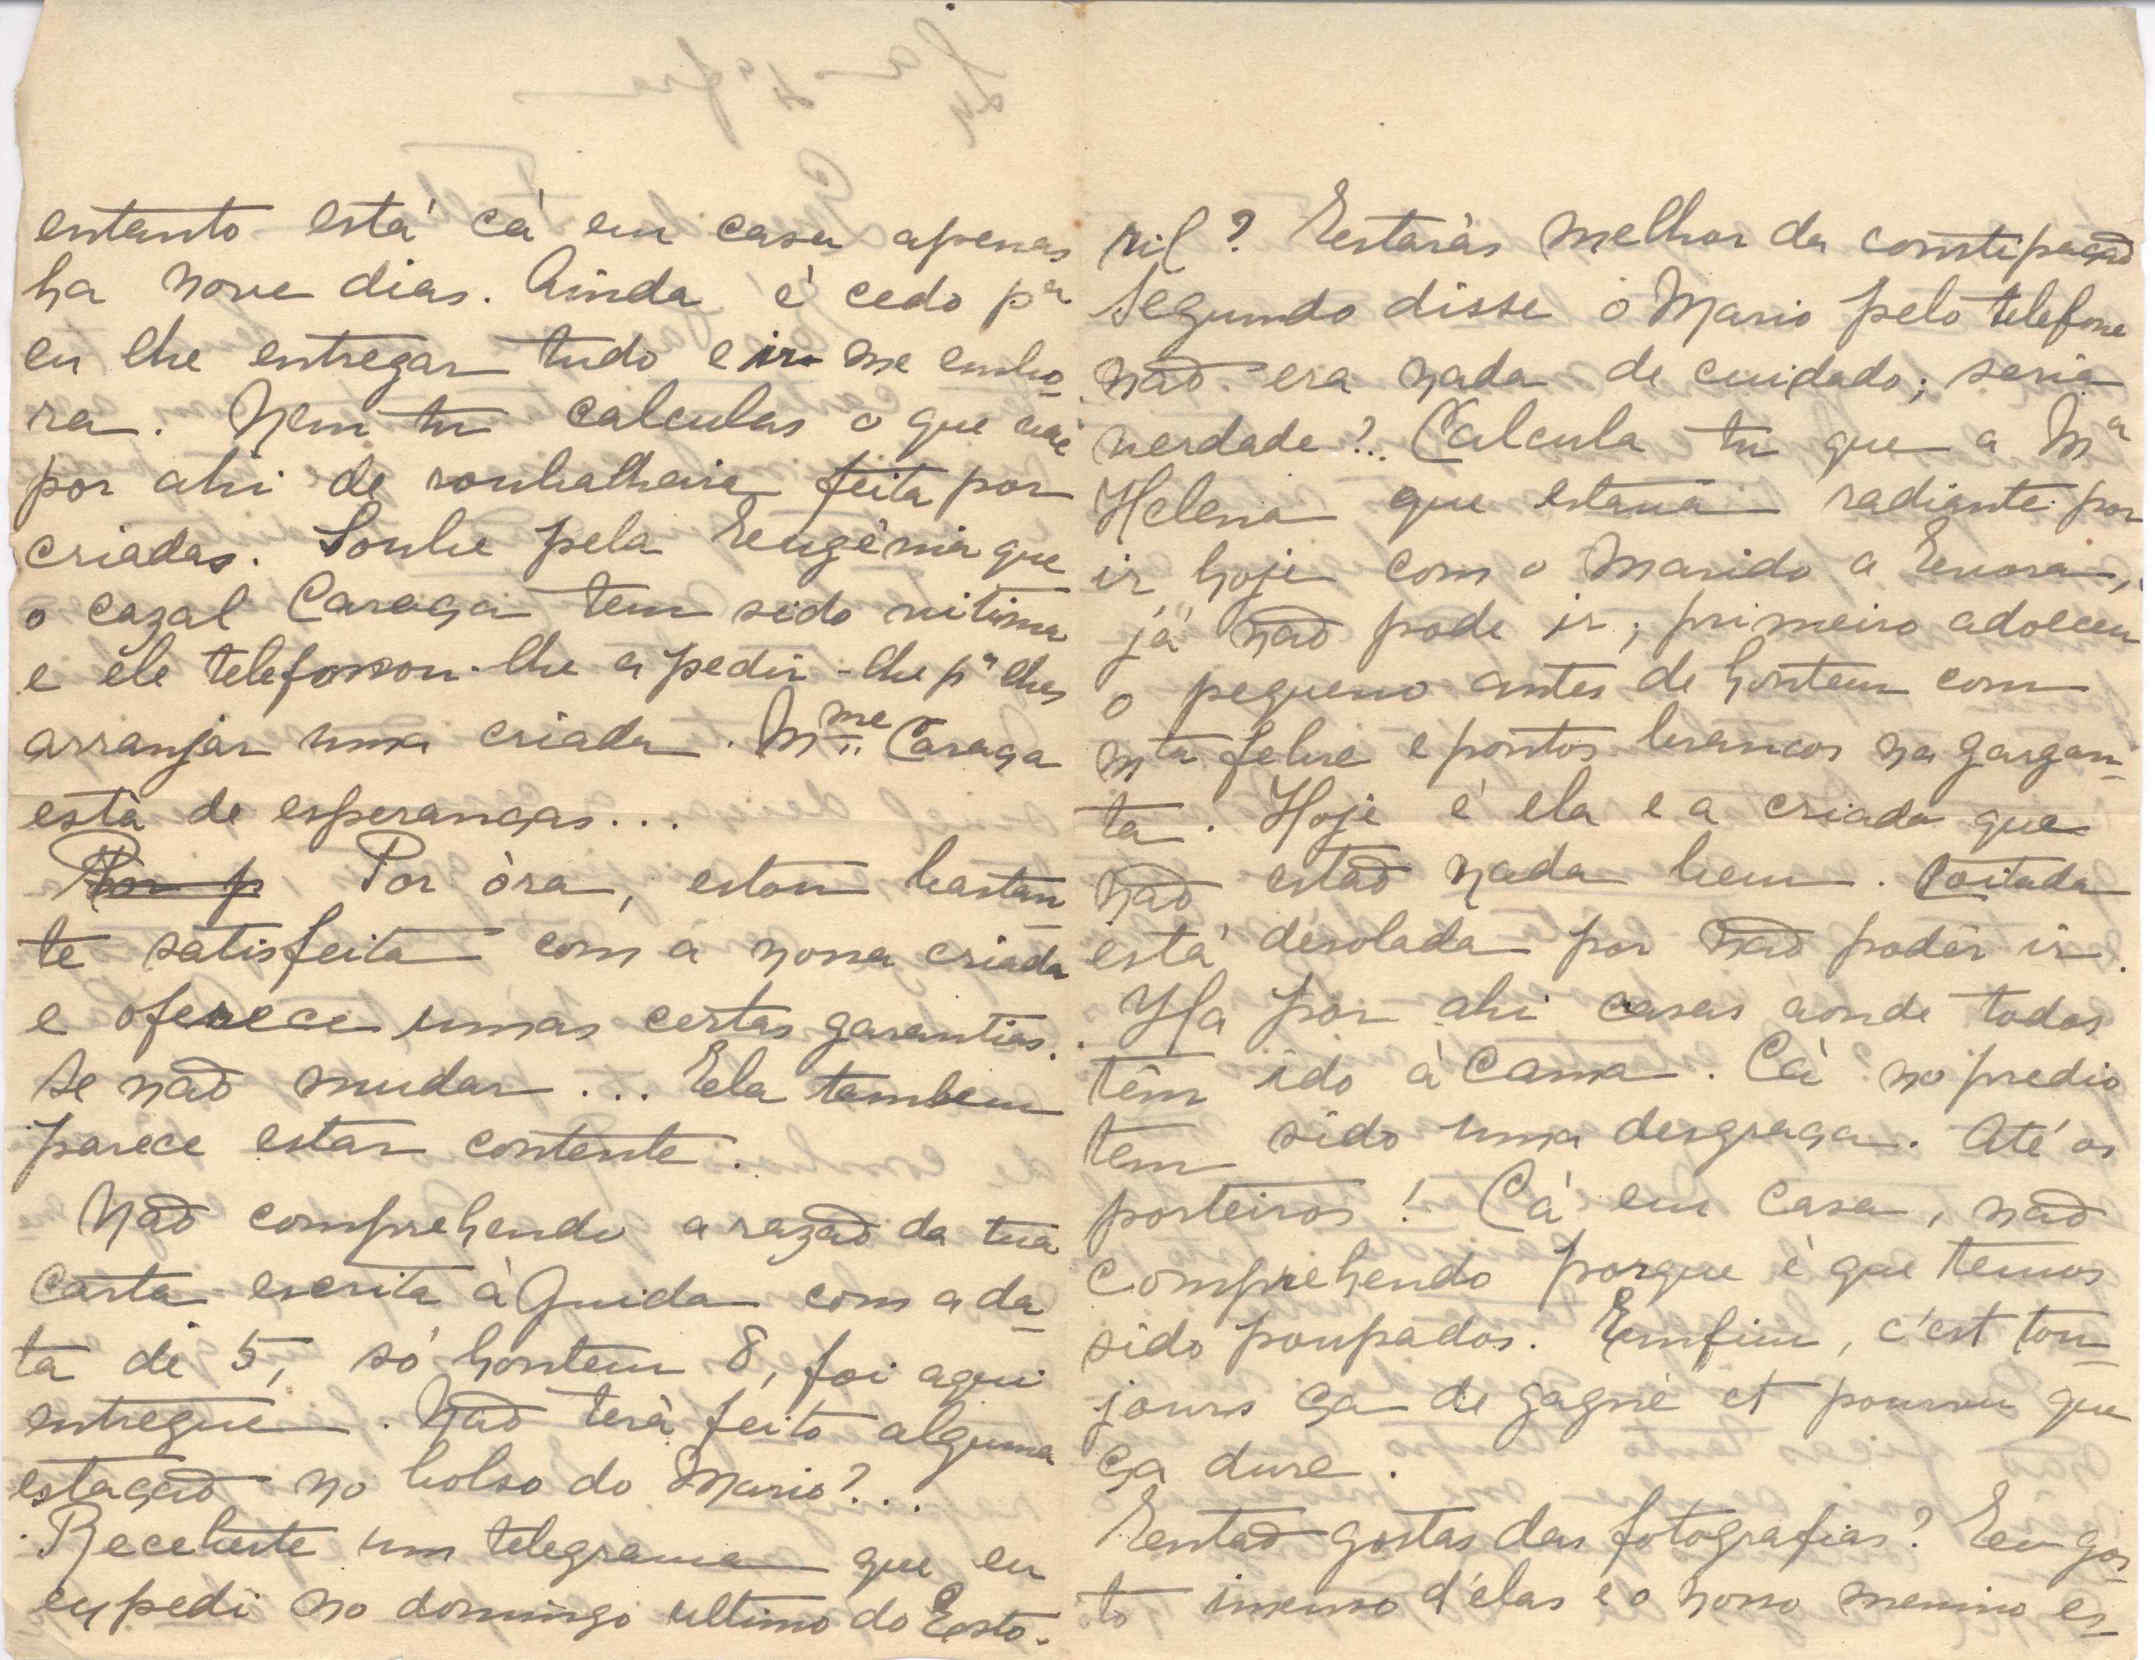 entanto está cá em casa apenas
ha nove dias. Ainda é cedo pª
eu lhe entregar tudo e ir me embo-
ra. Nem tu calculas o que vae
por ahi de roubalheira feita por
criadas. Soube pela Eugénia que
o cazal Caraça tem sido vitima
e êle telefonou-lhe a pedir-lhe pª lhes
arranjar uma criada. Mme Caraça
está de esperanças...
Por p Por óra, estou bastan-
te satisfeita com a nova criada
e oferece umas certas garantias.
Se não mudar... Ela tambem
parece estar contente.
Não comprehendo a razão da tua
carta escrita à Guida com a da-
ta de 5, só hontem 8, foi aqui
entregue. Não terá feito alguma
estação no bolso do Mario?...
Recebeste um telegrama que eu
expedi no domingo ultimo do Esto-
ril? Estarás melhor da constipação
Segundo disse o Mario pelo telefone
não era nada de cuidado; seria
verdade?.. Calcula tu que a Mª
Helena que estava radiante por
ir hoje com o marido a Evora,
já não pode ir; primeiro adoeceu
o pequeno antes de hontem com
mta febre e pontos brancos na gargan-
ta. Hoje é ela e a criada que
não estão nada bem. Coitada
está desolada por não poder ir.
Ha por ahi casas aonde todos
têm ido à cama. Cá no predio
tem sido uma desgraça. Até os
porteiros! Cá em casa, não
comprehendo porque é que temos
sido poupados. Emfim, c'est tou-
jours ça de gagné et pourvu que
ça dure.
Então gostas das fotografias? Eu gos-
to imenso d'elas e o nosso menino es-